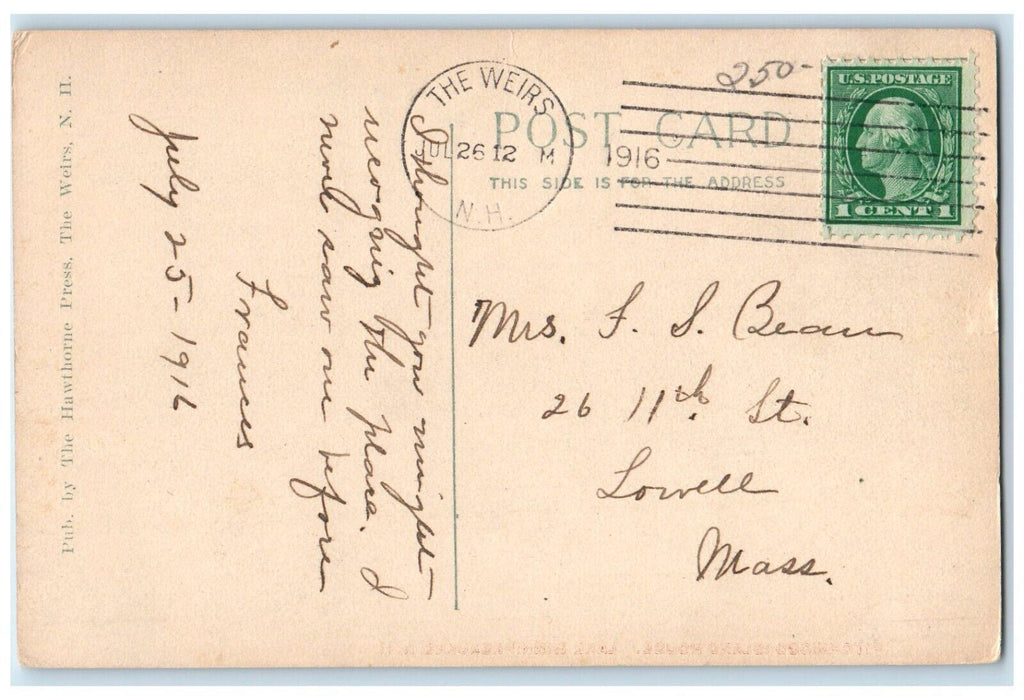 Pub. by The Hawthorne Press, The Weirs, N. H.
July 25 - 1916
I thought you might
recogniz the place. I
never saw one before
Frances
THE WEIRS
JUL 26 12 M
1916
N.H.
250-
POST CARD
THIS SIDE IS FOR THE ADDRESS
U.S. POSTAGE
1 CENT 1
Mrs. F. S. Bean
26 11th St.
Lowell
Mass.